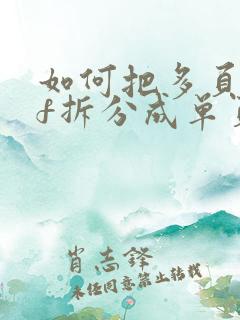 如何把多页
f拆分成单
肖志铎
未经同意禁止转载